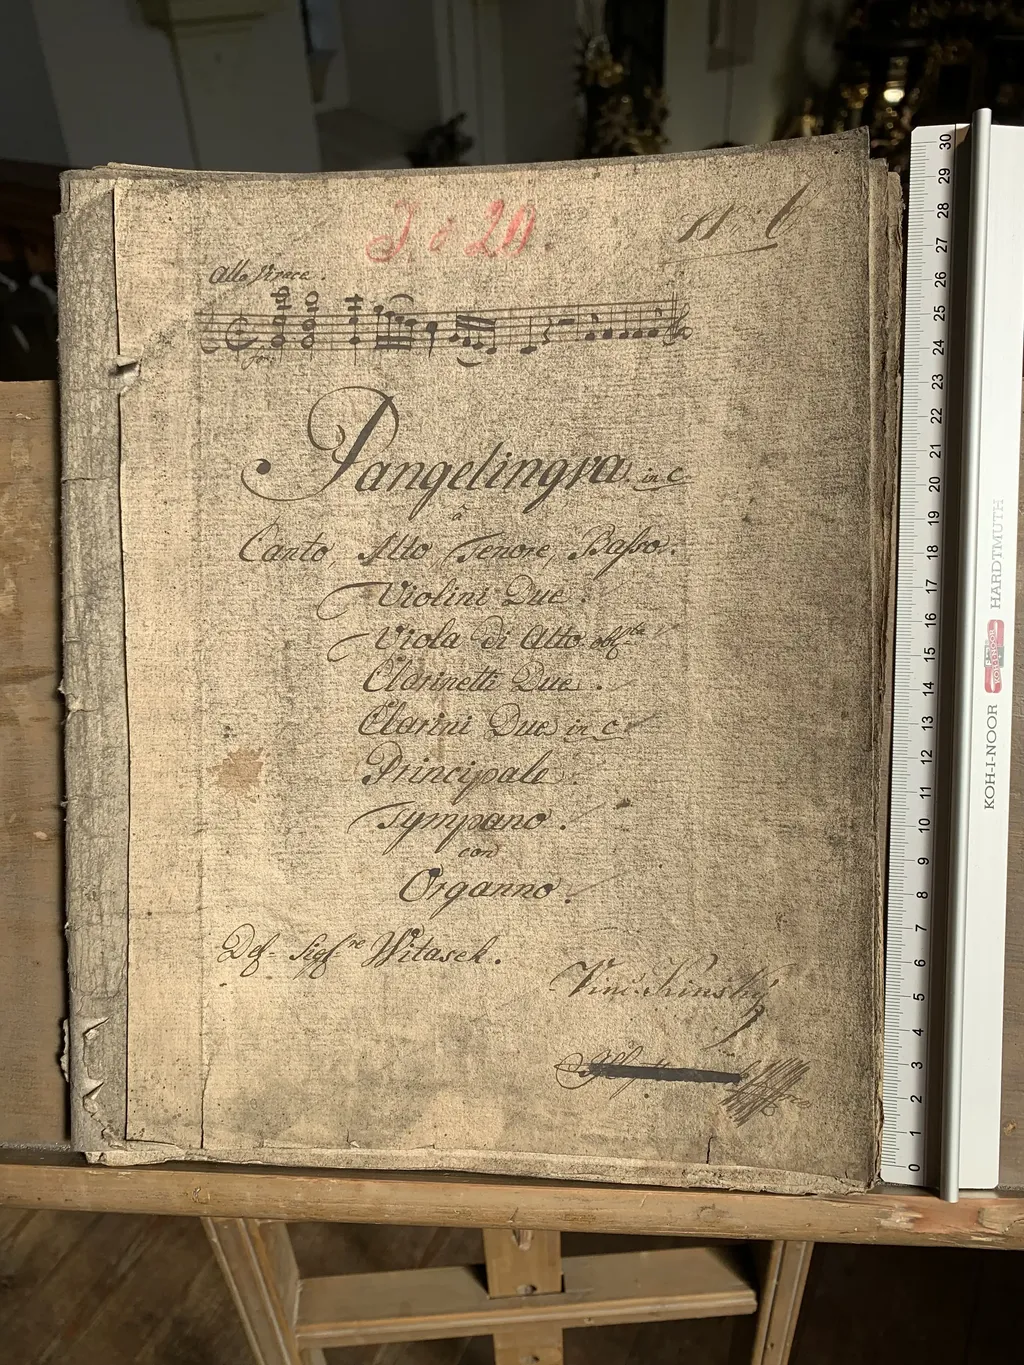 J: o: 20.
N: 6
Allo Vivace.
for:
Pangelingva. in C
à
Canto, Alto, Tenore, Basso.
Violini Due.
Viola di Alto oblta
Clarinetti Due.
Clarini Due in C
Principale.
Tympano.
con
Organno.
Del- Sigre Witasek.
Vinc. Kinsky
30
29
28
27
26
25
24
23
22
21
20
19
18
17
16
15
14
13
12
11
10
9
8
7
6
5
4
3
2
1
0
KOH-I-NOOR HARDTMUTH
KOH-I-NOOR